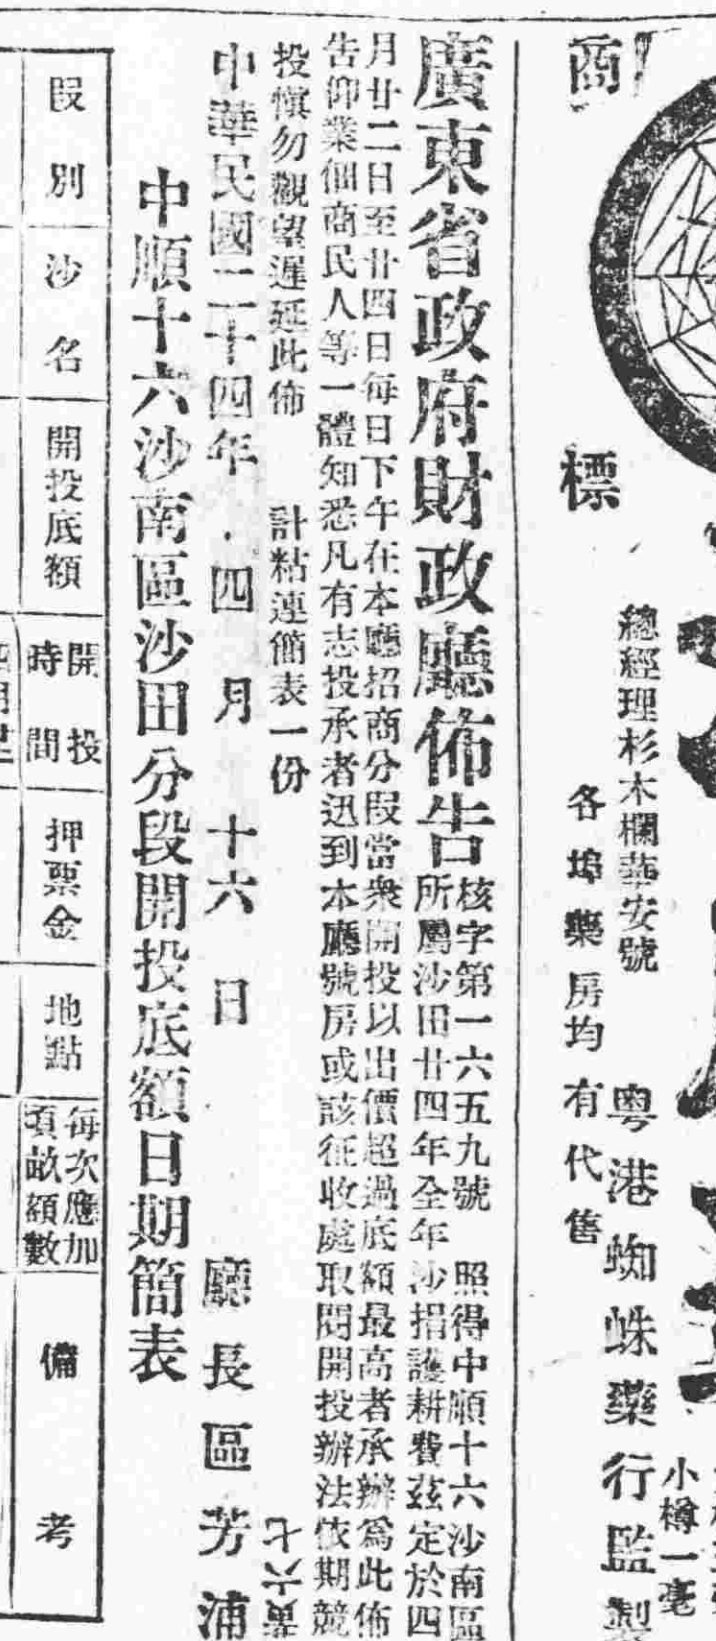 商
標
小樽一毫
總經理杉木欄華安號
粵港蜘蛛藥行監製
各埠藥房均有代售
廣東省政府財政廳佈告
核字第一六五九號 照得中順十六沙南區
所屬沙田廿四年全年沙捐護耕費茲定於四
月廿二日至廿四日每日下午在本廳招商分段當衆開投以出價超過底額最高者承辦爲此佈
告仰業佃商民人等一體知悉凡有志投承者迅到本廳號房或該征收處取閱開投辦法依期競
投愼勿觀望遲延此佈 計粘連簡表一份
中華民國二十四年四月十六日 廳長區芳浦
中順十六沙南區沙田分段開投底額日期簡表
段別
沙名
開投底額
開投
時間
押票金
地點
每次應加
項畝額數
備考